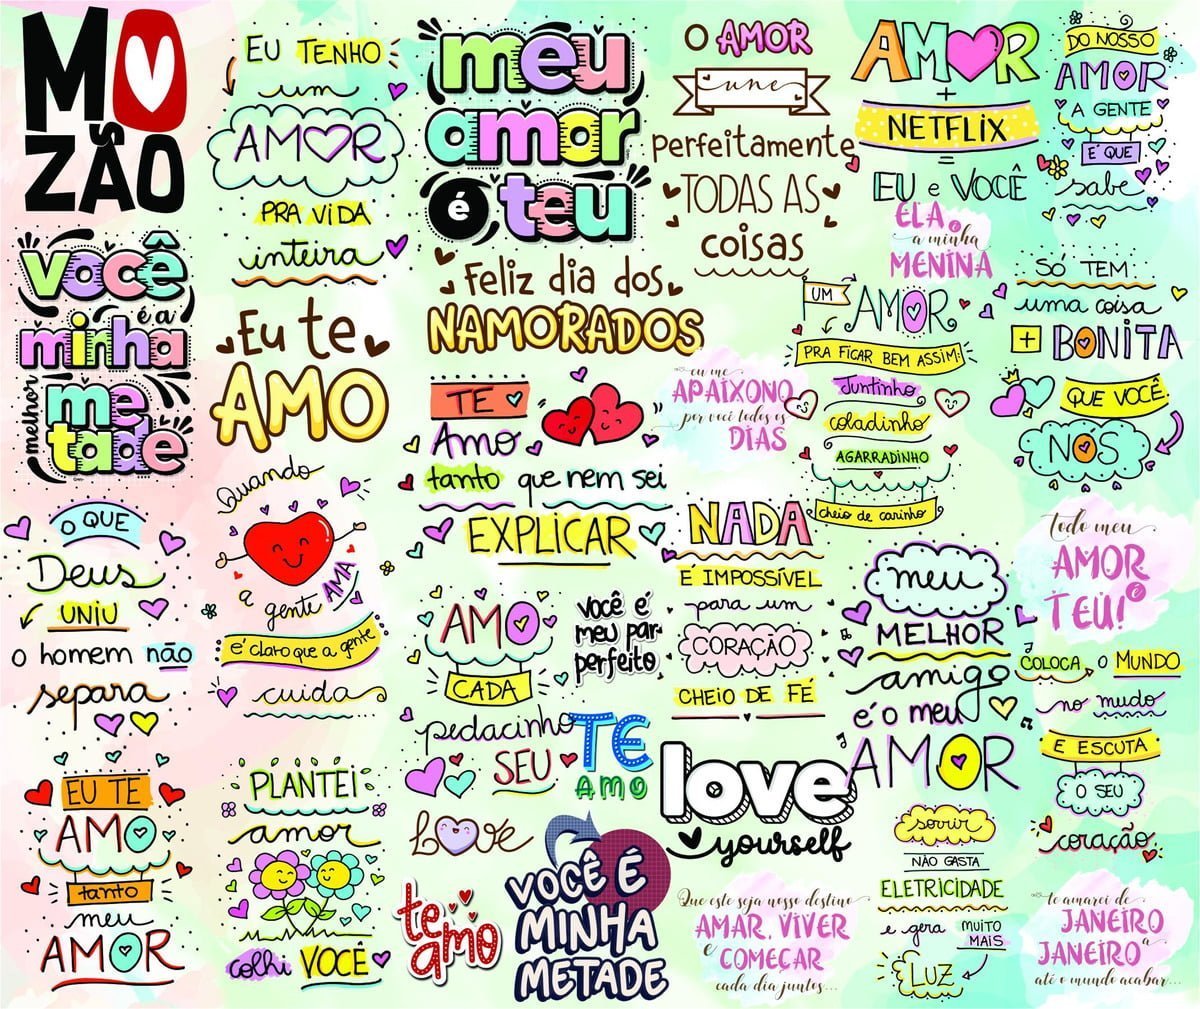 MO
ZÃO
EU TENHO
um
AMOR
PRA VIDA
inteira
meu
amor
é teu
O AMOR
une
perfeitamente
TODAS AS
coisas
AMOR
+
NETFLIX
=
EU e VOCÊ
DO NOSSO
AMOR
A GENTE
É QUE
sabe
você
é a
minha
melhor
me
tade
Eu te
AMO
Feliz dia dos
NAMORADOS
ELA é
a minha
MENINA
UM AMOR
PRA FICAR BEM ASSIM:
Juntinho
coladinho
AGARRADINHO
cheio de carinho
SÓ TEM
uma coisa
+ BONITA
QUE VOCÊ:
NÓS
TE
Amo
tanto que nem sei
EXPLICAR
eu me
APAIXONO
por você todos os
DIAS
O QUE
Deus
UNIU
o homem não
separa
Quando
a gente AMA
é claro que a gente
cuida
AMO
CADA
pedacinho
SEU
você é
meu par
perfeito
NADA
É IMPOSSÍVEL
para um
CORAÇÃO
CHEIO DE FÉ
meu
MELHOR
amigo
é o meu
AMOR
Todo meu
AMOR é
TEU!
COLOCA O MUNDO
no mudo
E ESCUTA
O SEU
coração
EU TE
AMO
tanto
meu
AMOR
PLANTEI
amor
colhi VOCÊ
TE
AMO
LOVE
te
amo
VOCÊ É
MINHA
METADE
love
yourself
Que este seja nosso destino
AMAR, VIVER
e COMEÇAR
cada dia juntos...
sorrir
NÃO GASTA
ELETRICIDADE
e gera MUITO
MAIS
LUZ
te amarei de
JANEIRO
a
JANEIRO
até o mundo acabar...